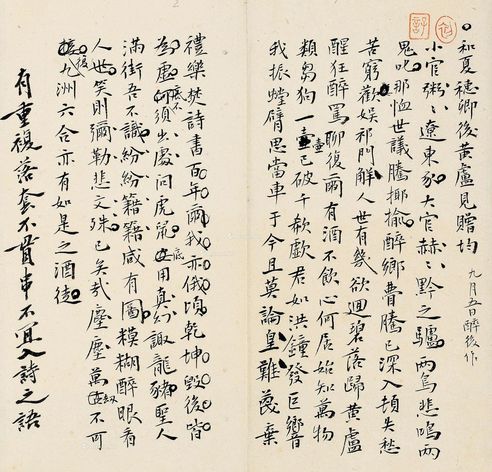 和夏穗卿後黃盧見贈均 九月五日醉後作
小官粥〻遼東豕大官赫〻黔之驢兩烏悲鳴兩
鬼叱那恤世議騰揶揄醉鄉瞢騰已深入頓失愁
苦窮歡娛祁門解人世有幾欲迴碧落歸黃盧
醒狂醉罵聊復爾有酒不飲心何居始知萬物
類芻狗一壺已破千欷歔君如洪鐘發巨響
我振螳臂思當車于今且莫論皇雜蔑棄
禮樂焚詩書百年爾我亦俄頃乾坤毀後皆
為虛底不須出處問虎鼠底用真幻諏龍豬聖人
滿街吾不識紛紛籍籍咸有圖糢糊醉眼看
人世笑則彌勒悲文殊已矣哉塵塵萬劫不可
後九洲六合亦有如是之酒徒
有重複落套不貫串不宜入詩之語